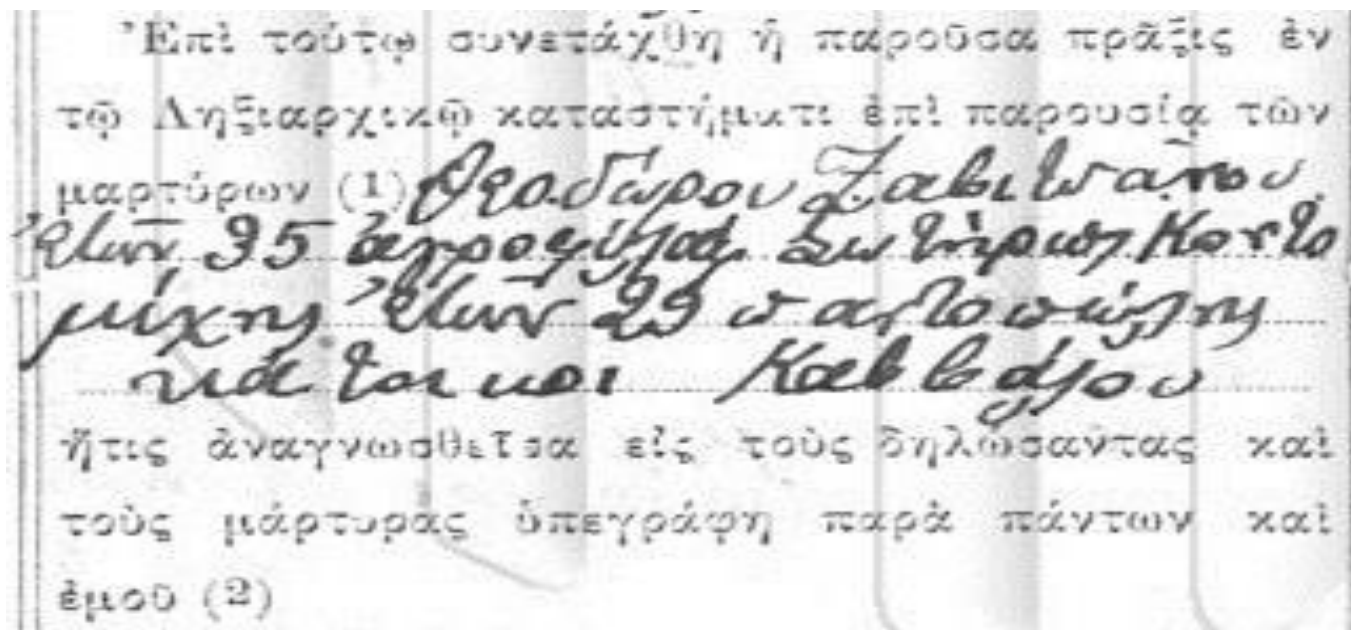 Ἐπὶ τούτῳ συνετάχθη ἡ παροῦσα πρᾶξις ἐν
τῷ Ληξιαρχικῷ καταστήματι ἐπὶ παρουσίᾳ τῶν
μαρτύρων (1) Θεοδώρου
ἐτῶν 35 ἀγροφύλαξ Σωτήριος Κοντο
μίχης ἐτῶν 29 παντοπώλης
κάτοικοι Καββάλου
ἥτις ἀναγνωσθεῖσα εἰς τοὺς δηλώσαντας καὶ
τοὺς μάρτυρας ὑπεγράφη παρὰ πάντων καὶ
ἐμοῦ (2)